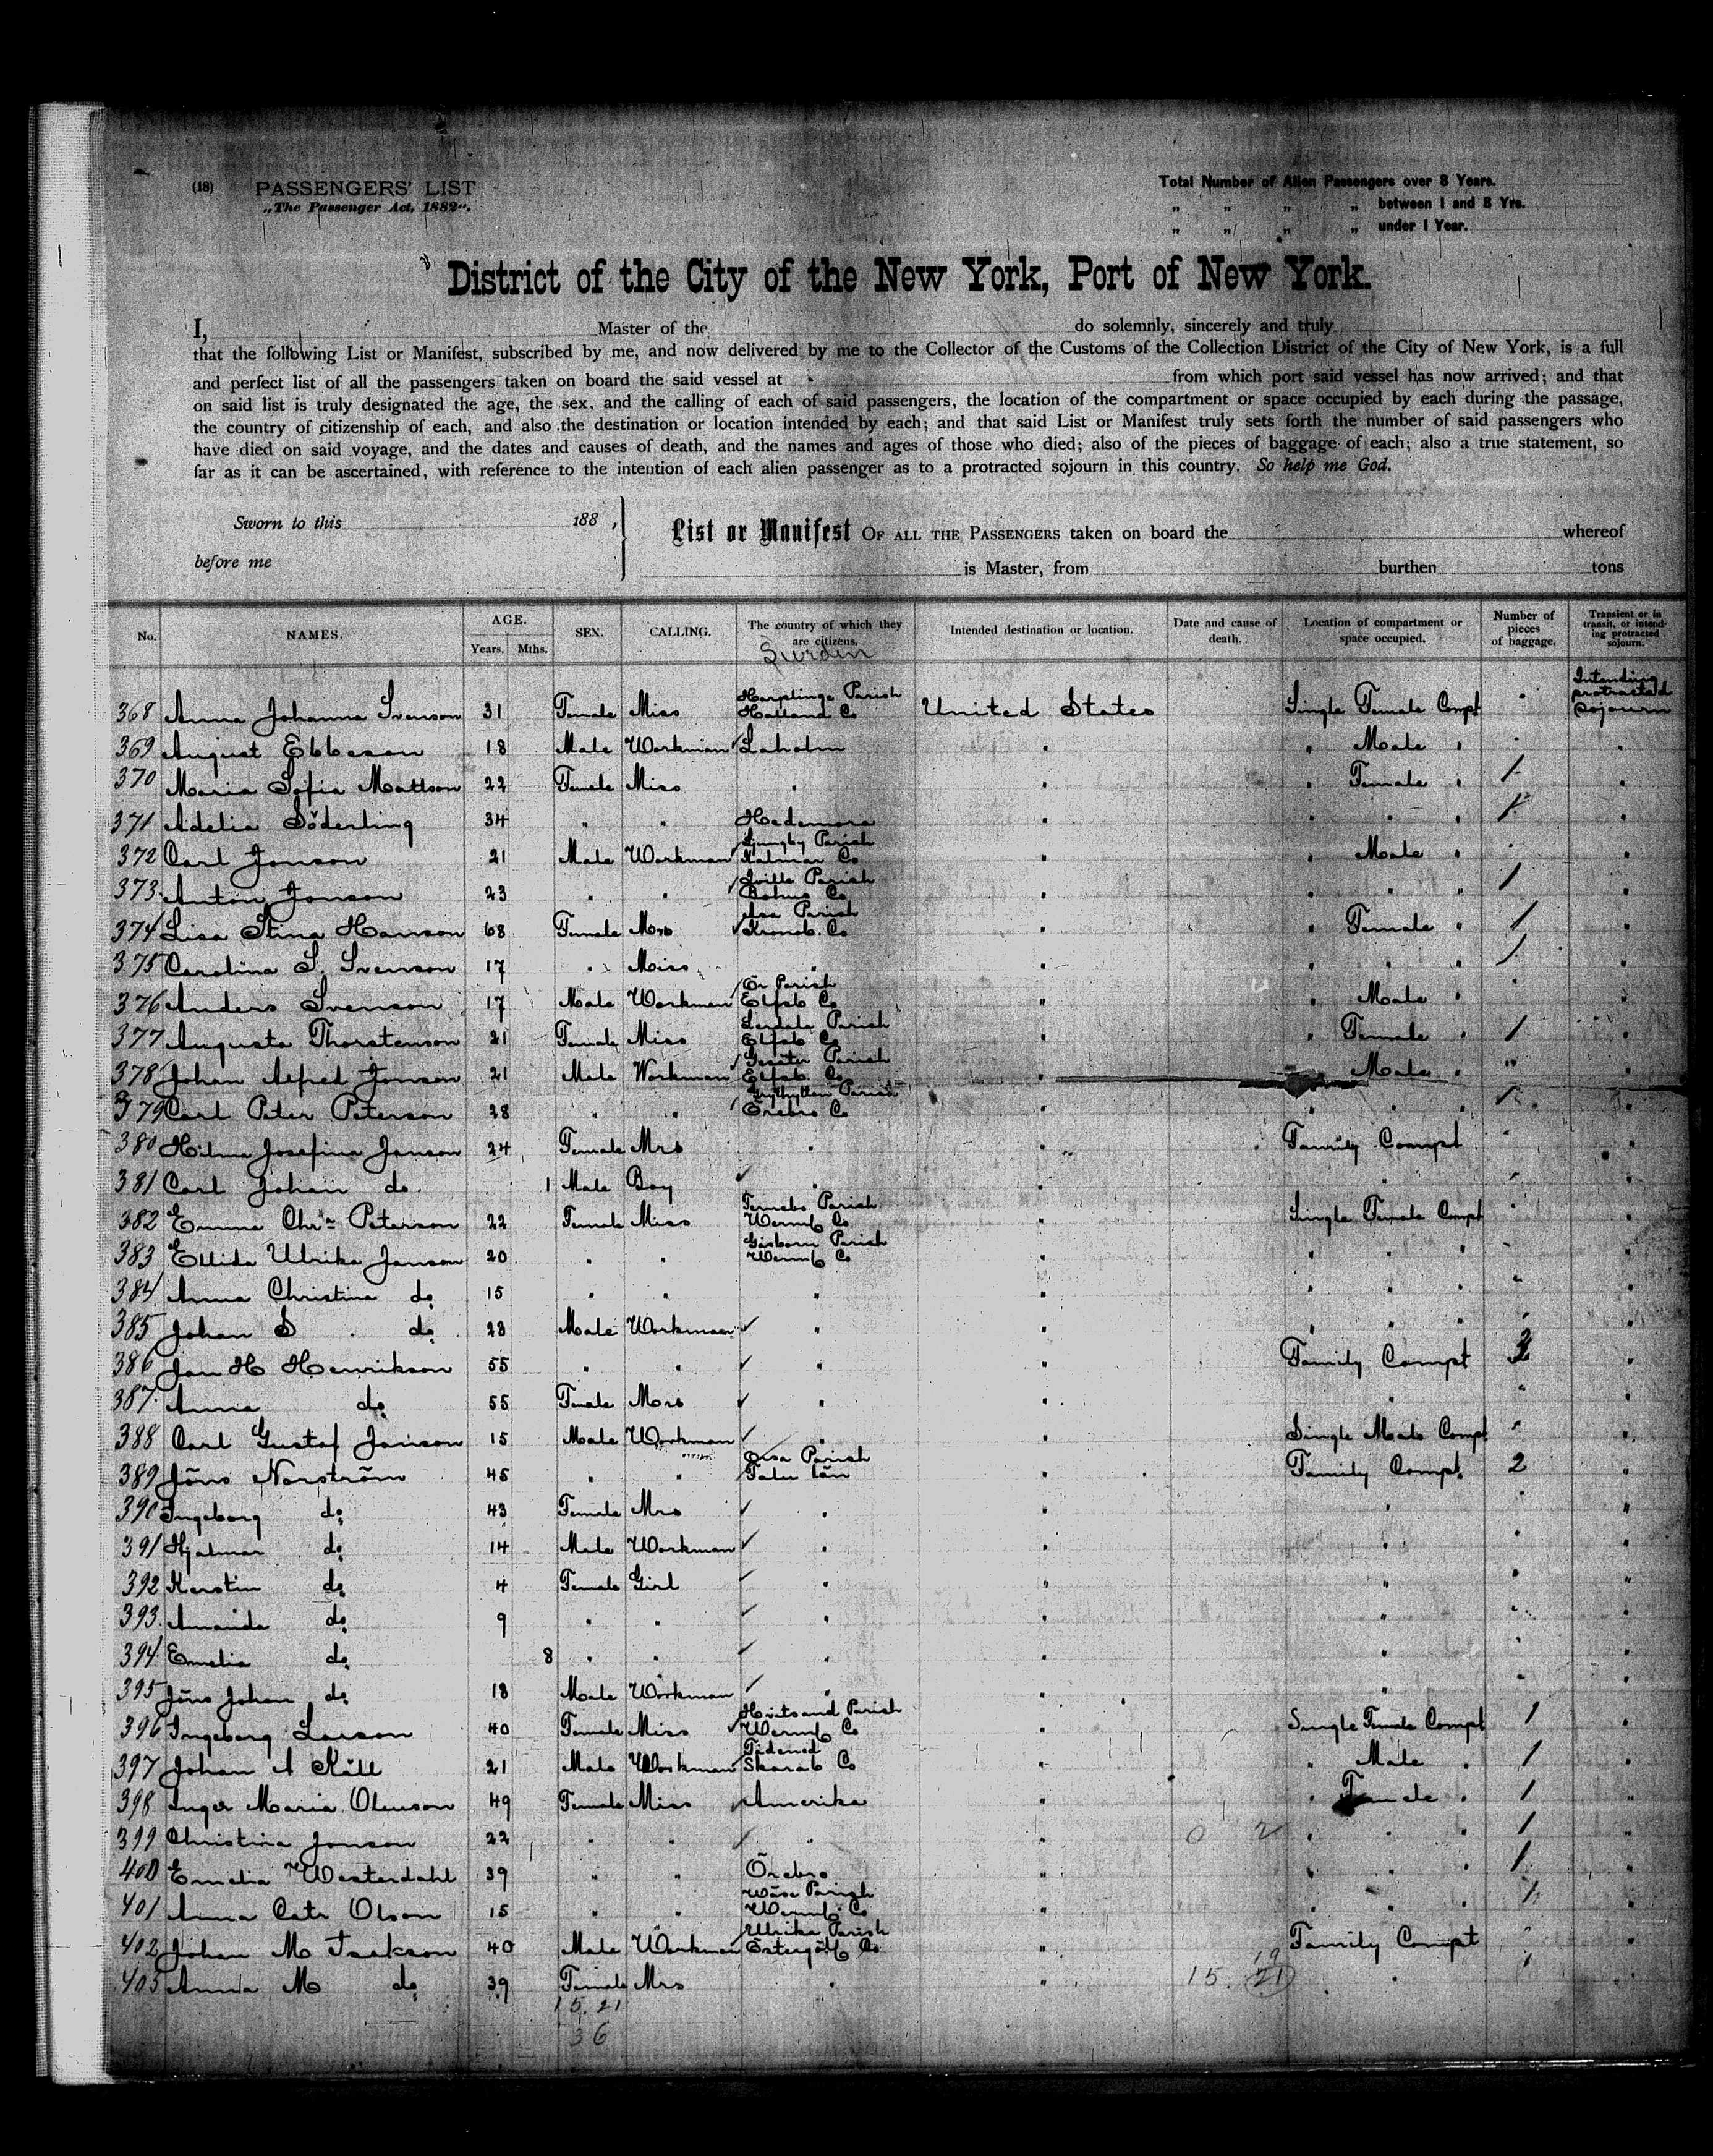 (18) PASSENGERS' LIST
„The Passenger Act, 1882".
Total Number of Alien Passengers over 8 Years.
„ „ „ „ between 1 and 8 Yrs.
„ „ „ „ under 1 Year.
District of the City of the New York, Port of New York.
I, Master of the do solemnly, sincerely and truly
that the following List or Manifest, subscribed by me, and now delivered by me to the Collector of the Customs of the Collection District of the City of New York, is a full
and perfect list of all the passengers taken on board the said vessel at from which port said vessel has now arrived; and that
on said list is truly designated the age, the sex, and the calling of each of said passengers, the location of the compartment or space occupied by each during the passage,
the country of citizenship of each, and also the destination or location intended by each; and that said List or Manifest truly sets forth the number of said passengers who
have died on said voyage, and the dates and causes of death, and the names and ages of those who died; also of the pieces of baggage of each; also a true statement, so
far as it can be ascertained, with reference to the intention of each alien passenger as to a protracted sojourn in this country. So help me God.
Sworn to this 188 ,
before me
List or Manifest OF ALL THE PASSENGERS taken on board the whereof
is Master, from burthen tons
No. NAMES. AGE. Years. Mths. SEX. CALLING. The country of which they are citizens. Intended destination or location. Date and cause of death. Location of compartment or space occupied. Number of pieces of baggage. Transient or in transit, or intending protracted sojourn.
368 Anna Johanna Svenson 31 Female Miss Harplinge Parish Halland Co United States Single Female Compt " Intending protracted Sojourn
369 August Ebbeson 18 Male Workman Laholm " " Male " " "
370 Maria Sofia Mattson 22 Female Miss " " " Female " 1 "
371 Adelia Söderling 34 " " Hedemora " " " " 1 "
372 Carl Jonson 21 Male Workman Ljungby Parish Kalmar Co " " Male " " "
373 Anton Jonson 23 " " Sville Parish Bohus Co " " " " 1 "
374 Lisa Stina Hanson 68 Female Mrs Asa Parish Kronob. Co " " Female " 1 "
375 Carolina S. Svenson 17 " Miss " " " " " 1 "
376 Anders Svenson 17 Male Workman Ör Parish Elfsb Co " " Male " " "
377 Augusta Thorstenson 21 Female Miss Lerdala Parish Elfsb Co " " Female " 1 "
378 Johan Alfred Jonson 21 Male Workman Parish Elfsb. Co " " Male " " "
379 Carl Peter Peterson 28 " " Grythyttan Parish Örebro Co " " " " 1 "
380 Hilma Josefina Janson 24 Female Mrs " " Family Compt " "
381 Carl Johan do 1 Male Boy " " " " "
382 Emma Chr= Peterson 22 Female Miss Fernebo Parish Wermb Co " Single Female Compt " "
383 Ellida Ulrika Janson 20 " " Gåsborn Parish Wermb Co " " " " " "
384 Anna Christina do 15 " " " " " " " " "
385 Johan S do 23 Male Workman " " " " " " "
386 Jan H Henrikson 55 " " " " Family Compt "
387 Anna do 55 Female Mrs " " " " "
388 Carl Gustaf Janson 15 Male Workman " " Single Male Compt " "
389 Jöns Norström 45 " " Orsa Parish Falu län " Family Compt. 2 "
390 Ingeborg do 43 Female Mrs " " " " "
391 Hjalmar do 14 Male Workman " " " " "
392 Kerstin do 4 Female Girl " " " " "
393 Amanda do 9 " " " " " " "
394 Emelia do 8 " " " " " " "
395 Jöns Johan do 18 Male Workman " " " " "
396 Ingeborg Larson 40 Female Miss Hvitsand Parish Wermb Co " Single Female Compt 1 "
397 Johan A Kill 21 Male Workman Tidened Skarab Co " " Male " 1 "
398 Inger Maria Olenson 49 Female Miss Amerika " " Female " 1 "
399 Christina Jonson 22 " " " " " " " 1 "
400 Emelia Westerdahl 39 " " Örebro " " " " 1 "
401 Anna Catr Olson 15 " " Wäse Parish Wermb Co " " " " 1 "
402 Johan M Isakson 40 Male Workman Ulrika Parish Östergötl Co " Family Compt " "
403 Anna M do 39 Female Mrs " " 15. 21 " "
15, 21
36